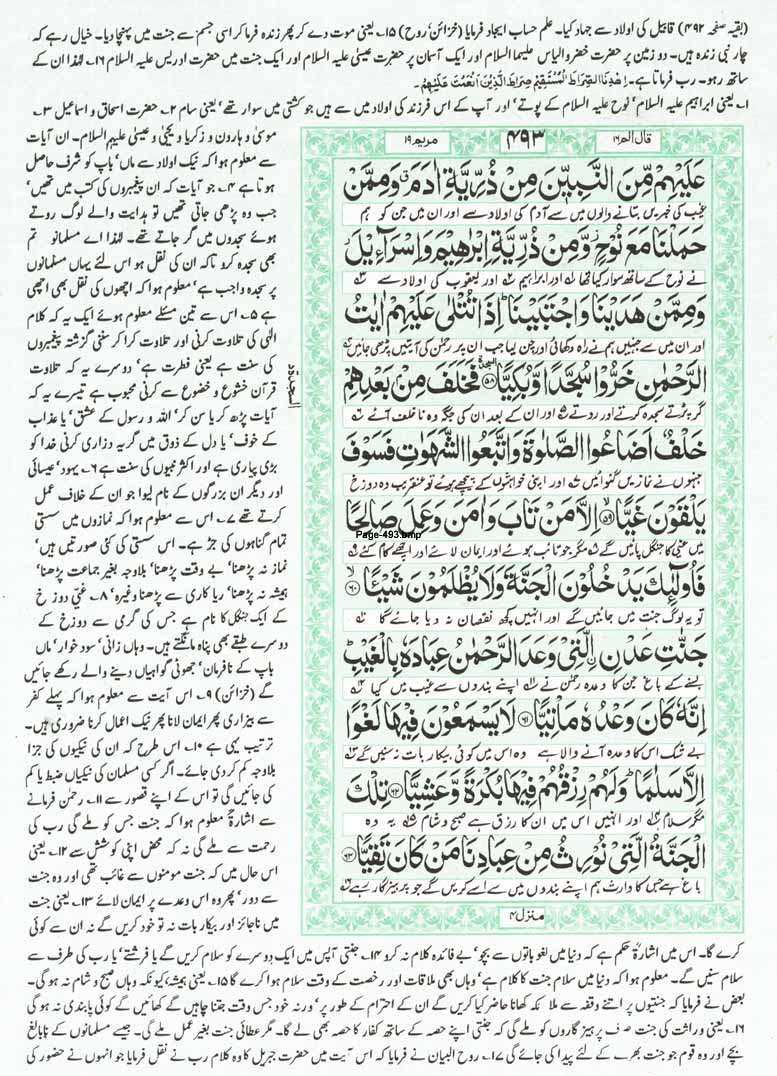 (بقیہ صفحہ ۴۹۲) قابیل کی اولاد سے جہاد کیا۔ علم حساب ایجاد فرمایا (خزائن، روح) ۱۵۔ یعنی موت دے کر پھر زندہ فرما کر اسی جسم سے جنت میں پہنچا دیا۔ خیال رہے کہ
چار نبی زندہ ہیں۔ دو زمین پر حضرت خضر و الیاس علیہما السلام اور ایک آسمان پر حضرت عیسیٰ علیہ السلام اور ایک جنت میں حضرت ادریس علیہ السلام ۱۶۔ لہٰذا ان کے
ساتھ رہو۔ رب فرماتا ہے۔ اِهْدِنَا الصِّرَاطَ الْمُسْتَقِیْمَ صِرَاطَ الَّذِیْنَ اَنْعَمْتَ عَلَیْهِمْ۔
۱۔ یعنی ابراہیم علیہ السلام، نوح علیہ السلام کے پوتے، اور آپ کے اس فرزند کی اولاد میں سے ہیں جو کشتی میں سوار تھے، یعنی سام ۲۔ حضرت اسحاق و اسماعیل ۳۔
قال الم ۱۶
۴۹۳
مریم ۱۹
عَلَیْهِمْ مِّنَ النَّبِیّٖنَ مِنْ ذُرِّیَّةِ اٰدَمَ ۗ وَمِمَّنْ
غیب کی خبریں بتانے والوں میں سے آدم کی اولاد سے اور ان میں جن کو ہم
حَمَلْنَا مَعَ نُوْحٍ ۫ وَّمِنْ ذُرِّیَّةِ اِبْرٰهِیْمَ وَاِسْرَآءِیْلَ ۫
نے نوح کے ساتھ سوار کیا تھا اور ابراہیم اور یعقوب کی اولاد سے
وَمِمَّنْ هَدَیْنَا وَاجْتَبَیْنَا ؕ اِذَا تُتْلٰی عَلَیْهِمْ اٰیٰتُ
اور ان میں سے جنہیں ہم نے راہ دکھائی اور چن لیا جب ان پر رحمٰن کی آیتیں پڑھی جاتیں
الرَّحْمٰنِ خَرُّوْا سُجَّدًا وَّبُكِیًّا ۩ ﴿۵۸﴾ فَخَلَفَ مِنْۢ بَعْدِهِمْ
گر پڑتے سجدہ کرتے اور روتے اور ان کے بعد ان کی جگہ وہ ناخلف آئے
خَلْفٌ اَضَاعُوا الصَّلٰوةَ وَاتَّبَعُوا الشَّهَوٰتِ فَسَوْفَ
جنہوں نے نمازیں گنوائیں اور اپنی خواہشوں کے پیچھے ہوئے تو عنقریب وہ دوزخ
یَلْقَوْنَ غَیًّا ﴿۵۹﴾ اِلَّا مَنْ تَابَ وَاٰمَنَ وَعَمِلَ صَالِحًا
Page-493.bmp
میں غیّ کا جنگل پائیں گے مگر جو تائب ہوئے اور ایمان لائے اور اچھے کام کئے
فَاُولٰٓئِكَ یَدْخُلُوْنَ الْجَنَّةَ وَلَا یُظْلَمُوْنَ شَیْـًٔا ﴿۶۰﴾
تو یہ لوگ جنت میں جائیں گے اور انہیں کچھ نقصان نہ دیا جائے گا
جَنّٰتِ عَدْنِ ۣالَّتِیْ وَعَدَ الرَّحْمٰنُ عِبَادَهٗ بِالْغَیْبِ ؕ
بسنے کے باغ جن کا وعدہ رحمٰن نے اپنے بندوں سے غیب میں کیا
اِنَّهٗ كَانَ وَعْدُهٗ مَاْتِیًّا ﴿۶۱﴾ لَا یَسْمَعُوْنَ فِیْهَا لَغْوًا
بے شک اس کا وعدہ آنے والا ہے وہ اس میں کوئی بیکار بات نہ سنیں گے
اِلَّا سَلٰمًا ؕ وَلَهُمْ رِزْقُهُمْ فِیْهَا بُكْرَةً وَّعَشِیًّا ﴿۶۲﴾ تِلْكَ
مگر سلام اور انہیں اس میں ان کا رزق ہے صبح و شام یہ وہ
الْجَنَّةُ الَّتِیْ نُوْرِثُ مِنْ عِبَادِنَا مَنْ كَانَ تَقِیًّا ﴿۶۳﴾
باغ ہے جس کا وارث ہم اپنے بندوں میں سے اسے کریں گے جو پرہیزگار ہے
منزل ۴
السجدۃ ۵
موسیٰ و ہارون و زکریا و یحییٰ و عیسیٰ علیہم السلام۔ ان آیات
سے معلوم ہوا کہ نیک اولاد سے ماں، باپ کو شرف حاصل
ہوتا ہے ۴۔ جو آیات کہ ان پیغمبروں کی کتب میں تھیں،
جب وہ پڑھی جاتی تھیں تو ہدایت والے لوگ روتے
ہوئے سجدوں میں گر جاتے تھے۔ لہٰذا اے مسلمانو تم
بھی سجدہ کرو تاکہ ان کی نقل ہو اس لئے یہاں مسلمانوں
پر سجدہ واجب ہے، معلوم ہوا کہ اچھوں کی نقل بھی اچھی
ہے ۵۔ اس سے تین مسئلے معلوم ہوئے ایک یہ کہ کلام
الٰہی کی تلاوت کرنی اور تلاوت کرا کر سننی گزشتہ پیغمبروں
کی سنت ہے یعنی فطرت ہے، دوسرے یہ کہ تلاوت
قرآن خشوع و خضوع سے کرنی محبوب ہے تیسرے یہ کہ
آیات پڑھ کر یا سن کر، اللہ و رسول کے عشق، یا عذاب
کے خوف، یا دل کے ذوق میں گریہ و زاری کرنی خدا کو
بڑی پیاری ہے اور اکثر نبیوں کی سنت ہے ۶۔ یہود، عیسائی
اور دیگر ان بزرگوں کے نام لیوا جو ان کے خلاف عمل
کرتے تھے ۷۔ اس سے معلوم ہوا کہ نمازوں میں سستی
تمام گناہوں کی جڑ ہے۔ اس سستی کی کئی صورتیں ہیں،
نماز نہ پڑھنا، بے وقت پڑھنا، بلاوجہ بغیر جماعت پڑھنا،
ہمیشہ نہ پڑھنا، ریا کاری سے پڑھنا وغیرہ، ۸۔ غیّ دوزخ
کے ایک جنگل کا نام ہے جس کی گرمی سے دوزخ کے
دوسرے طبقے بھی پناہ مانگتے ہیں۔ وہاں زانی، سود خوار، ماں
باپ کے نافرمان، جھوٹی گواہیاں دینے والے رکھے جائیں
گے (خزائن) ۹۔ اس آیت سے معلوم ہوا کہ پہلے کفر
سے بیزاری پھر ایمان لانا پھر نیک اعمال کرنا ضروری ہیں۔
ترتیب یہی ہے ۱۰۔ اس طرح کہ ان کی نیکیوں کی جزا
بلاوجہ کم کر دی جائے۔ اگر کسی مسلمان کی نیکیاں ضبط یا کم
کی جائیں گی تو اس کے اپنے قصور سے ۱۱۔ رحمٰن فرمانے
سے اشارۃً معلوم ہوا کہ جنت جس کو ملے گی رب کی
رحمت سے ملے گی نہ کہ محض اپنی کوشش سے ۱۲۔ یعنی
اس حال میں کہ جنت مومنوں سے غائب تھی اور وہ جنت
سے دور، پھر وہ اس وعدے پر ایمان لائے ۱۳۔ یعنی جنت
میں ناجائز اور بیکار بات نہ تو خود کریں گے نہ ان سے کوئی
کرے گا۔ اس میں اشارۃً حکم ہے کہ دنیا میں لغو باتوں سے بچو، بے فائدہ کلام نہ کرو ۱۴۔ جنتی آپس میں ایک دوسرے کو سلام کریں گے یا فرشتے، یا رب کی طرف سے
سلام سنیں گے۔ معلوم ہوا کہ دنیا میں سلام جنت کا کلام ہے، وہاں بھی ملاقات اور رخصت کے وقت سلام ہوا کرے گا ۱۵۔ یعنی ہمیشہ کیونکہ وہاں صبح و شام نہ ہو گی۔
بعض نے فرمایا کہ جنتیوں پر اتنے وقفہ سے ملائکہ کھانا حاضر کیا کریں گے ان کے احترام کے طور پر، ورنہ خود جس وقت جتنا چاہیں گے کھائیں گے کوئی پابندی نہ ہو گی
۱۶۔ یعنی وراثت کی جنت صرف پرہیز گاروں کو ملے گی کہ جنتی اپنے حصہ کے ساتھ کفار کا حصہ بھی لے گا۔ مگر عطائی جنت بغیر عمل ملے گی۔ جیسے مسلمانوں کے نابالغ
بچے اور وہ قوم جو جنت بھرنے کے لئے پیدا کی جائے گی ۱۷۔ روح البیان نے فرمایا کہ اس آیت میں حضرت جبریل کا وہ کلام رب نے نقل فرمایا جو انہوں نے حضور کی